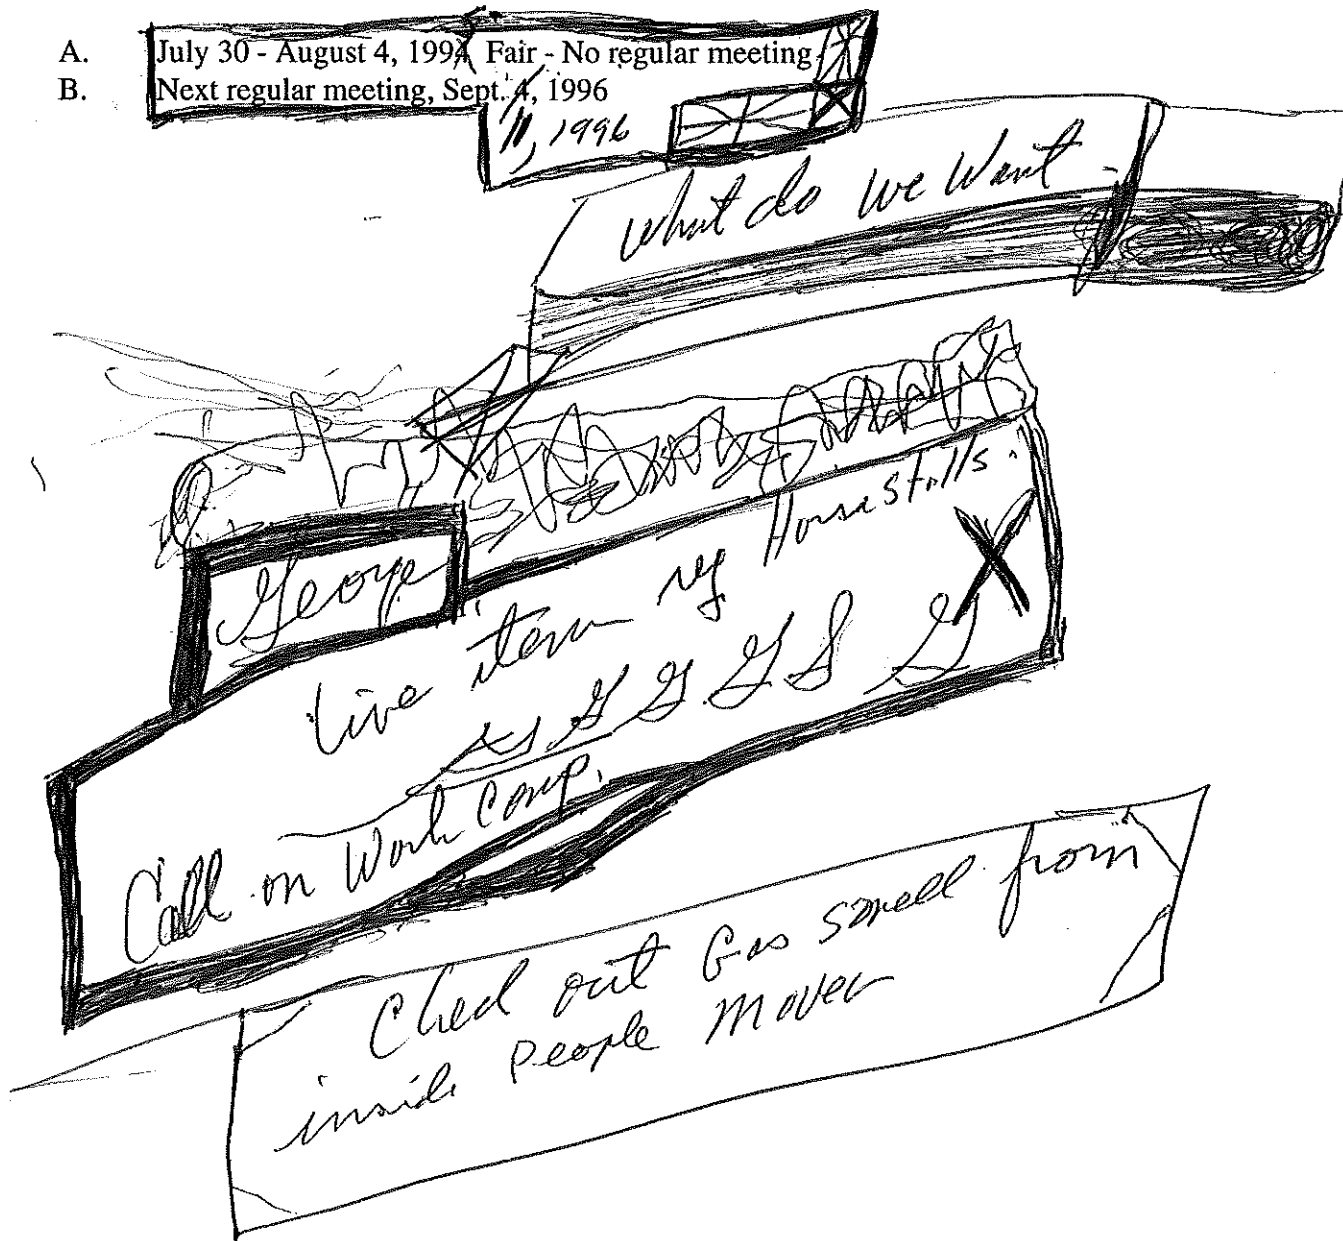 A. July 30 - August 4, 1994 Fair - No regular meeting
B. Next regular meeting, Sept. 4, 1996
11, 1996
what do we want
George
live item reg Horse Stalls.
G G G S G
Call on Work Comp.
Check out Gas smell from
inside People Mover